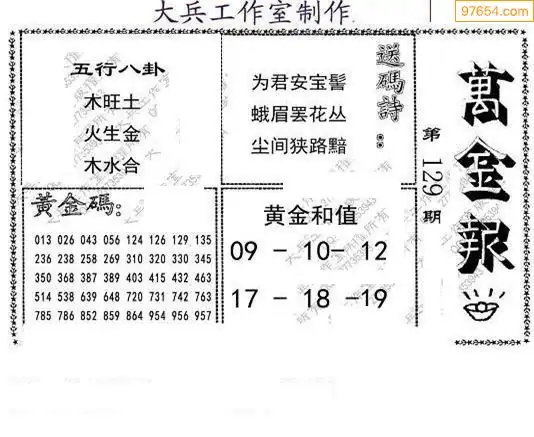 大兵工作室制作
97654.com
五行八卦
木旺土
火生金
木水合
送碼詩：
为君安宝髻
蛾眉罢花丛
尘间狭路黯
萬金報
第129期
黄金碼：
013 026 043 056 124 126 129 135
236 238 258 269 310 320 330 345
350 368 387 389 403 415 432 463
514 538 639 648 720 731 742 763
785 786 852 859 864 954 956 957
黄金和值
09 - 10- 12
17 - 18 -19